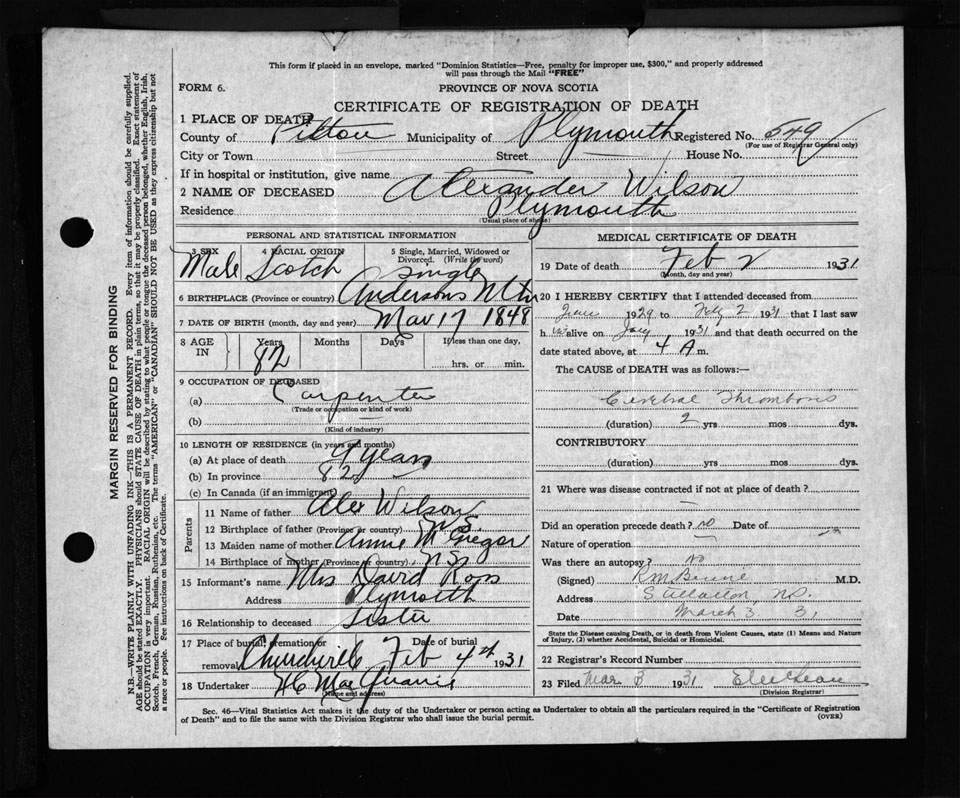 This form if placed in an envelope, marked "Dominion Statistics—Free, penalty for improper use, $300," and properly addressed
will pass through the Mail "FREE"
FORM 6.
PROVINCE OF NOVA SCOTIA
CERTIFICATE OF REGISTRATION OF DEATH
1 PLACE OF DEATH
County of Pictou Municipality of Plymouth Registered No. 549
(For use of Registrar General only)
City or Town Street House No.
If in hospital or institution, give name
2 NAME OF DECEASED Alexander Wilson
Residence Plymouth
(Usual place of abode)
PERSONAL AND STATISTICAL INFORMATION
3 SEX 4 RACIAL ORIGIN 5 Single, Married, Widowed or
Divorced. (Write the word)
Male Scotch Single
6 BIRTHPLACE (Province or country) Andersons Mtn
7 DATE OF BIRTH (month, day and year) Mar 17 1848
8 AGE IN Years Months Days If less than one day,
82 hrs. or min.
9 OCCUPATION OF DECEASED
(a) Carpenter
(Trade or occupation or kind of work)
(b)
(Kind of industry)
10 LENGTH OF RESIDENCE (in years and months)
(a) At place of death 9 years
(b) In province 82
(c) In Canada (if an immigrant)
Parents
11 Name of father Alex Wilson
12 Birthplace of father (Province or country) N.S.
13 Maiden name of mother Annie McGregor
14 Birthplace of mother (Province or country) N.S.
15 Informant's name Mrs David Ross
Address Plymouth
16 Relationship to deceased Sister
17 Place of burial, cremation or Date of burial
removal Churchville Feb 4th 1931
18 Undertaker
(Name and address)
MEDICAL CERTIFICATE OF DEATH
19 Date of death Feb 2 1931
(Month, day and year)
20 I HEREBY CERTIFY that I attended deceased from
1929 to Feby 2 1931 that I last saw
h im alive on Jany 1931 and that death occurred on the
date stated above, at 4 A m.
The CAUSE of DEATH was as follows:—
Cerebral Thrombosis
(duration) 2 yrs mos dys.
CONTRIBUTORY
(duration) yrs mos dys.
21 Where was disease contracted if not at place of death?
Did an operation precede death? no Date of
Nature of operation
Was there an autopsy? No
(Signed) M.D.
Address Stellarton N.S.
Date March 3 31
State the Disease causing Death, or in death from Violent Causes, state (1) Means and Nature
of Injury, (2) whether Accidental, Suicidal or Homicidal.
22 Registrar's Record Number
23 Filed Mar 3 1931
(Division Registrar)
Sec. 46—Vital Statistics Act makes it the duty of the Undertaker or person acting as Undertaker to obtain all the particulars required in the "Certificate of Registration
of Death" and to file the same with the Division Registrar who shall issue the burial permit. (OVER)
MARGIN RESERVED FOR BINDING
N.B.—WRITE PLAINLY WITH UNFADING INK—THIS IS A PERMANENT RECORD. Every item of information should be carefully supplied.
AGE should be stated EXACTLY. PHYSICIANS should STATE CAUSE OF DEATH in plain terms, so that it may be properly classified. Exact statement of
OCCUPATION is very important. RACIAL ORIGIN will be described by stating to what people or tongue the deceased person belonged, whether English, Irish,
Scotch, French, German, Russian, Ruthenian, etc. The terms "AMERICAN" or "CANADIAN" SHOULD NOT BE USED as they express citizenship but not
a race or people. See instructions on back of Certificate.